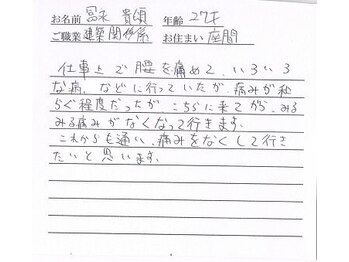 お名前 冨永 貴頌 年齢 27才
ご職業 建築関係 お住まい 座間
仕事上で腰を痛めて、いろいろ
な病、などに行っていたが、痛みが和
らぐ程度だったが、こちらに来てから、みる
みる痛みがなくなって行きます。
これからも通い、痛みをなくして行き
たいと思います。